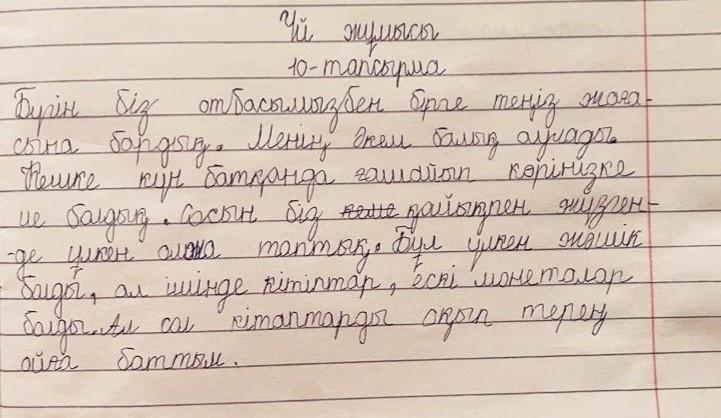 Үй жұмысы
10-тапсырма
Бүгін біз отбасымызбен бірге теңіз жаға-
сына бардық. Менің әкем балық аулады.
Кешке күн батқанда ғашайып көрінізке
ие болдық. Сосын біз кеше қайықпен жүзген-
-де үлкен олжа таптық. Бұл үлкен жәшік
болды, ал ішінде кітіптар, ескі монеталар
болды. Ал сол кітаптарды оқып терең
ойға баттым.